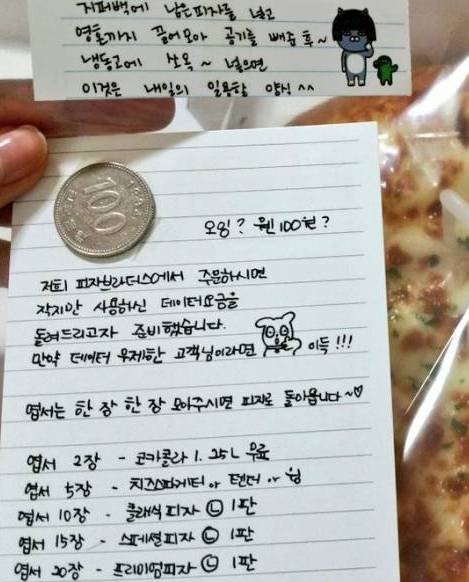 지퍼백에 남은피자를 넣고
영혼까지 끌어모아 공기를 빼준 후~
냉동고에 쏘옥~ 넣으면
이것은 내일의 일용할 양식 ^^
100
오잉? 웬 100원?
저희 피자브라더스에서 주문하시면
작지만 사용하신 데이터요금을
돌려드리고자 준비했습니다.
만약 데이터 무제한 고객님이라면 이득!!!
엽서는 한장 한장 모아주시면 피자로 돌아옵니다~♡
엽서 2장 - 코카콜라 1.25L 무료
엽서 5장 - 치즈스파게티 or 텐더 or 윙
엽서 10장 - 클래식피자 Ⓛ 1판
엽서 15장 - 스페셜피자 Ⓛ 1판
엽서 20장 - 프리미엄피자 Ⓛ 1판